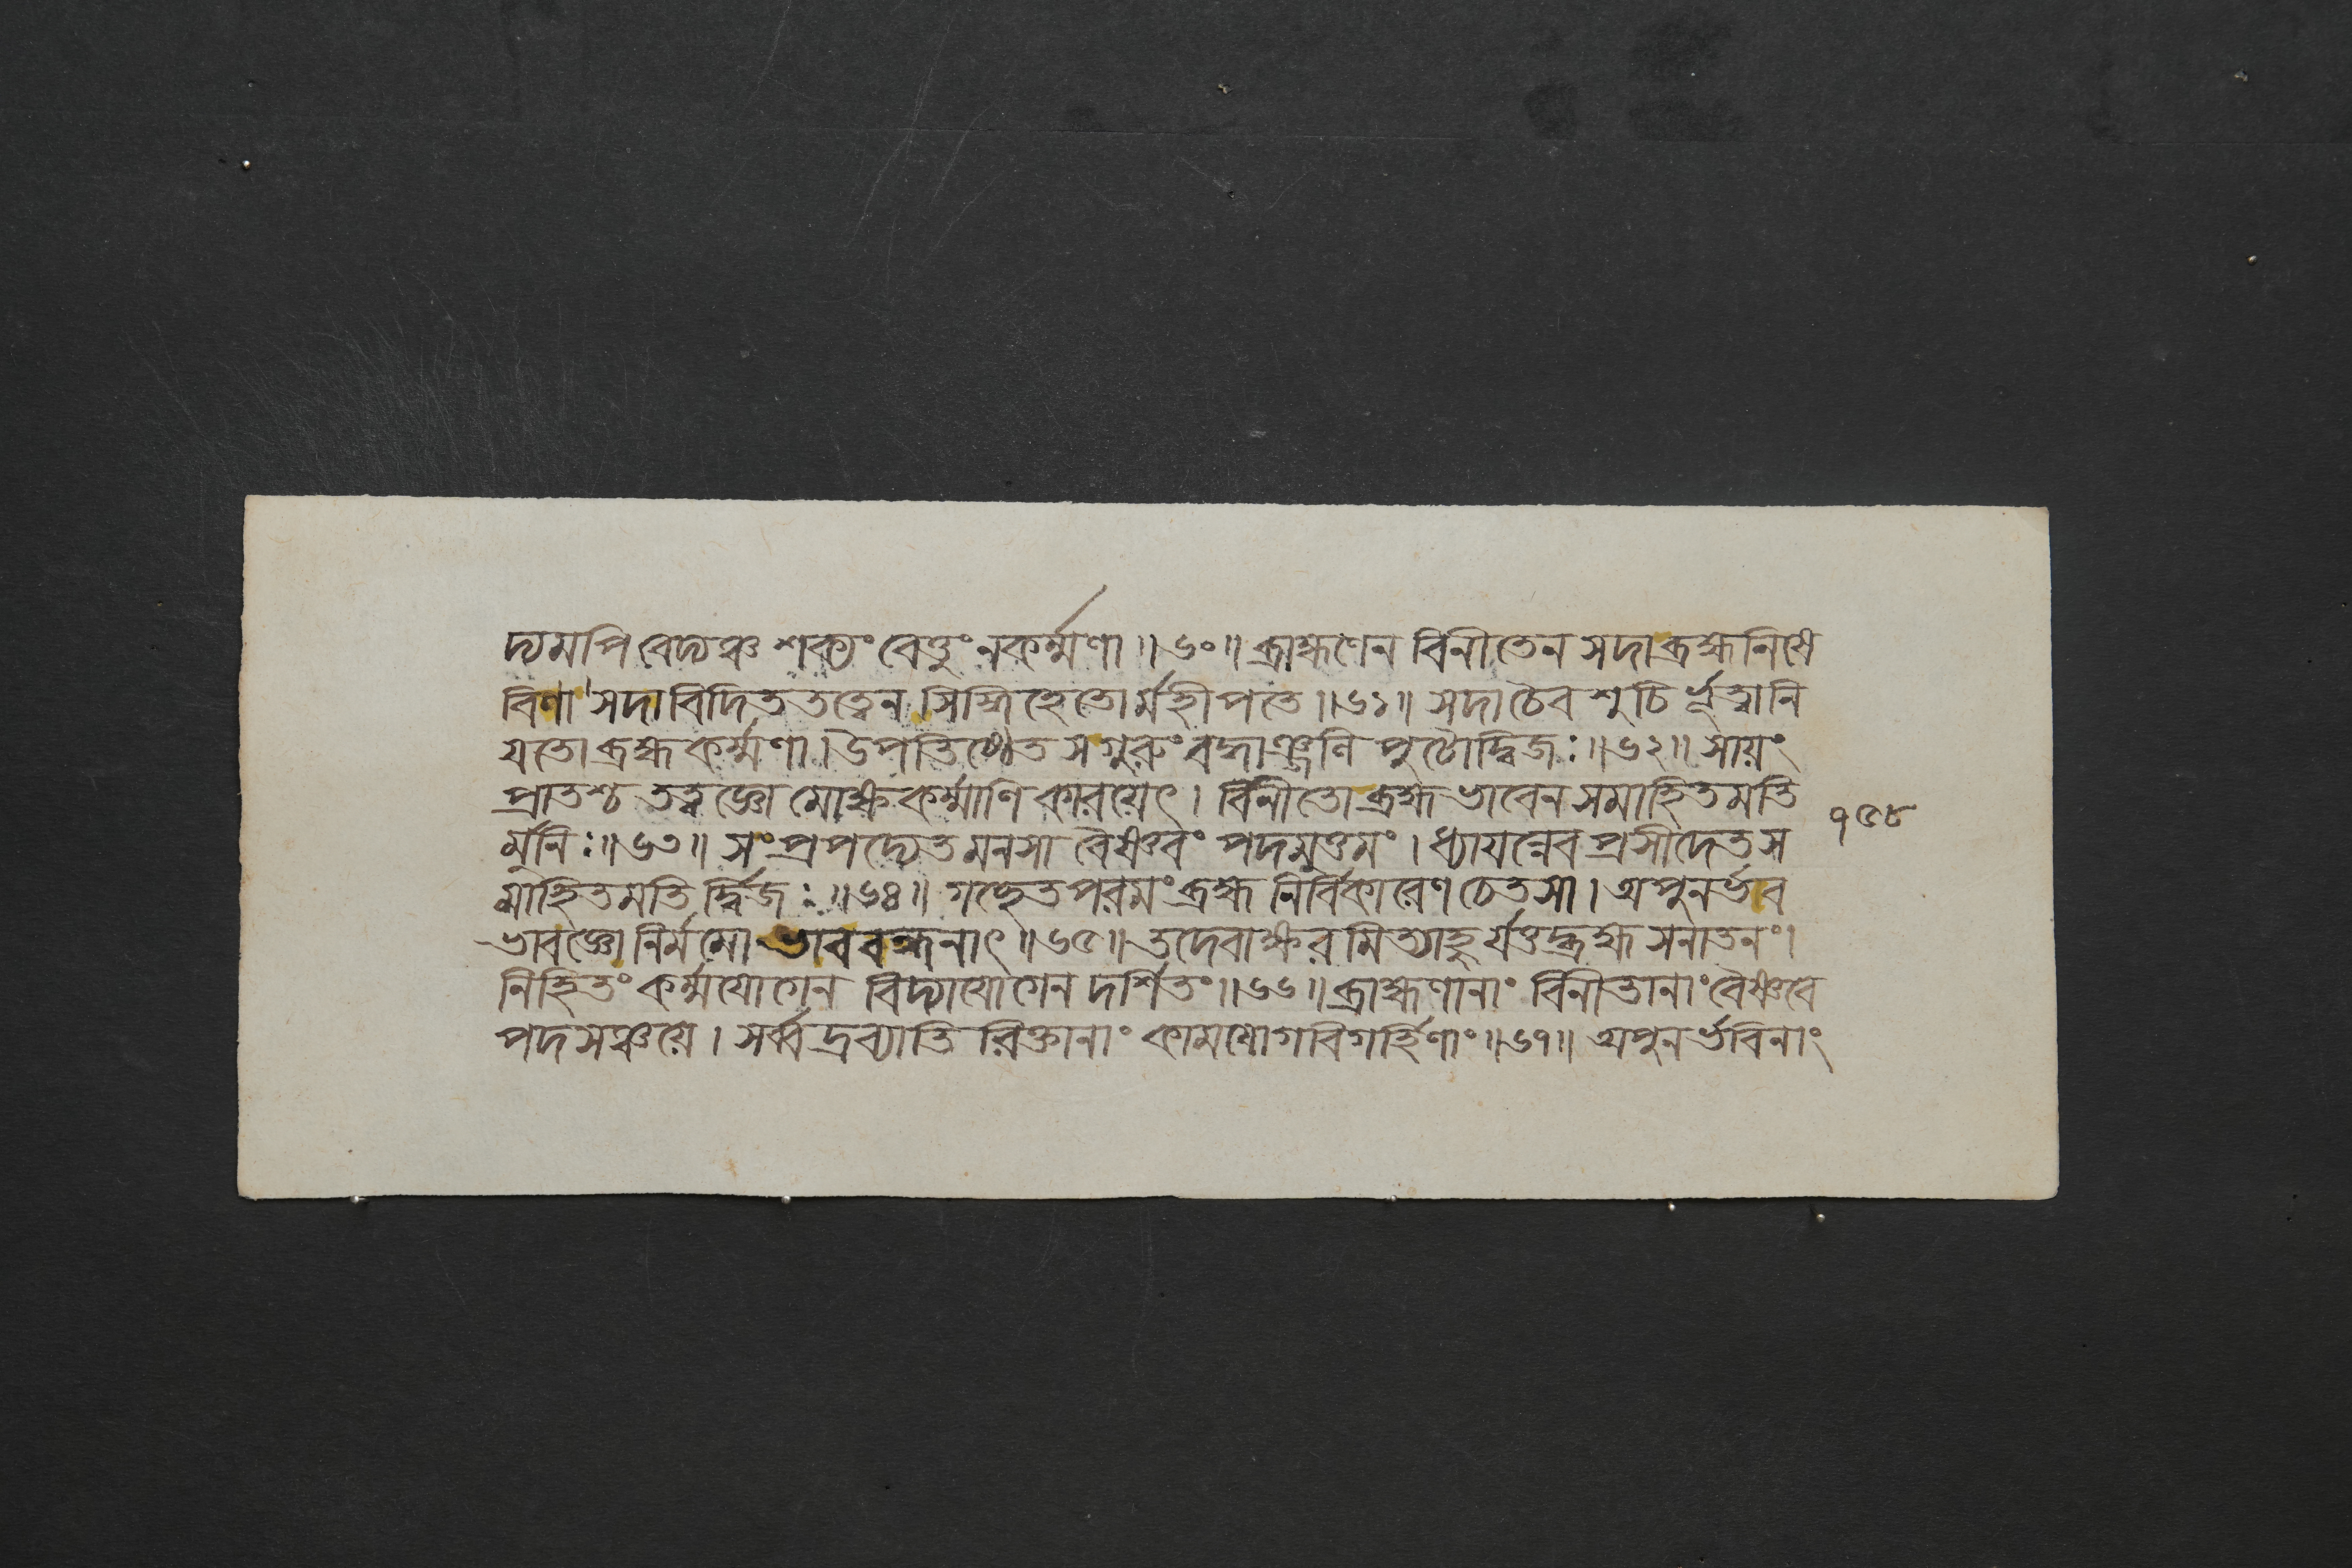 দ্যমপি বেদ্যঞ্চ শক্যং বেত্তুং নকর্ম্মণা॥৬০॥ ব্রাহ্মণেন বিনীতেন সদা ব্রহ্মনিষে
বিণা সদাবিদিততত্ত্বেন সিদ্ধিহেতোর্মহীপতে॥৬১॥ সদাচৈব শুচির্ভূত্বা নি
যতো ব্রহ্মকর্ম্মণা। উপতিষ্ঠেত সগুরুং বদ্ধাঞ্জলিপুটোদ্বিজঃ॥৬২॥ সায়ং
প্রাতশ্চ তত্ত্বজ্ঞো মোক্ষকর্ম্মাণি কারয়েৎ। বিনীতো ব্রহ্মভাবেন সমাহিতমতি
র্মুনিঃ॥৬৩॥ সংপ্রপদ্যেত মনসা বৈষ্ণবং পদমুত্তমং। ধ্যায়ন্নেব প্রসীদেত স
মাহিতমতির্দ্বিজঃ॥৬৪॥ গচ্ছেত পরমং ব্রহ্ম নির্বিকারেণ চেতসা। অপুনর্ভাব
ভাবজ্ঞো নির্মমো ভাববন্ধনাৎ॥৬৫॥ তদেবাক্ষরমিত্যাহুর্যত্তদ্ব্রহ্ম সনাতনং।
নিহিতং কর্ম্মযোগেন বিদ্যাযোগেন দর্শিতং॥৬৬॥ ব্রাহ্মণানাং বিনীতানাং বৈষ্ণবে
পদসঞ্চয়ে। সর্ব্বদ্রব্যাতিরিক্তানাং কামযোগবিগর্হিণাং॥৬৭॥ অপুনর্ভবিনাং
১৫৮